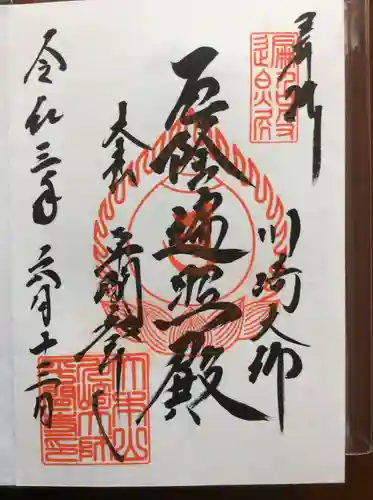 奉拝
川崎大師
厄除遍照殿
大本山
平間寺
令和三年六月十二日